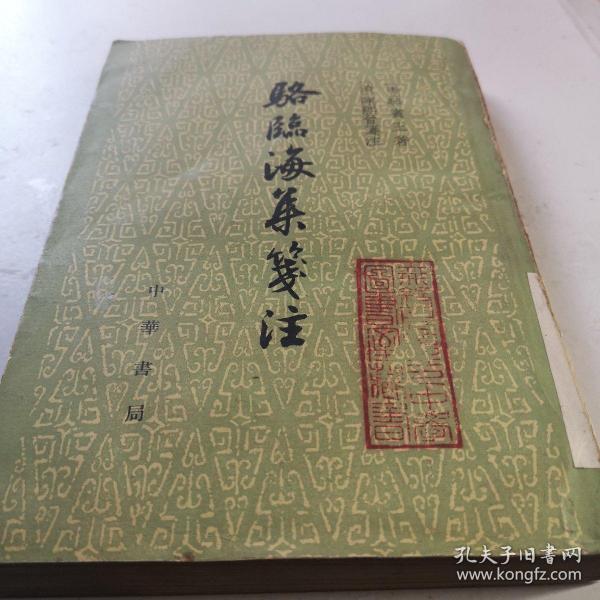 唐 駱賓王著
清 陳熙晉箋注
駱臨海集箋注
中華書局
孔夫子旧书网
www.kongfz.com